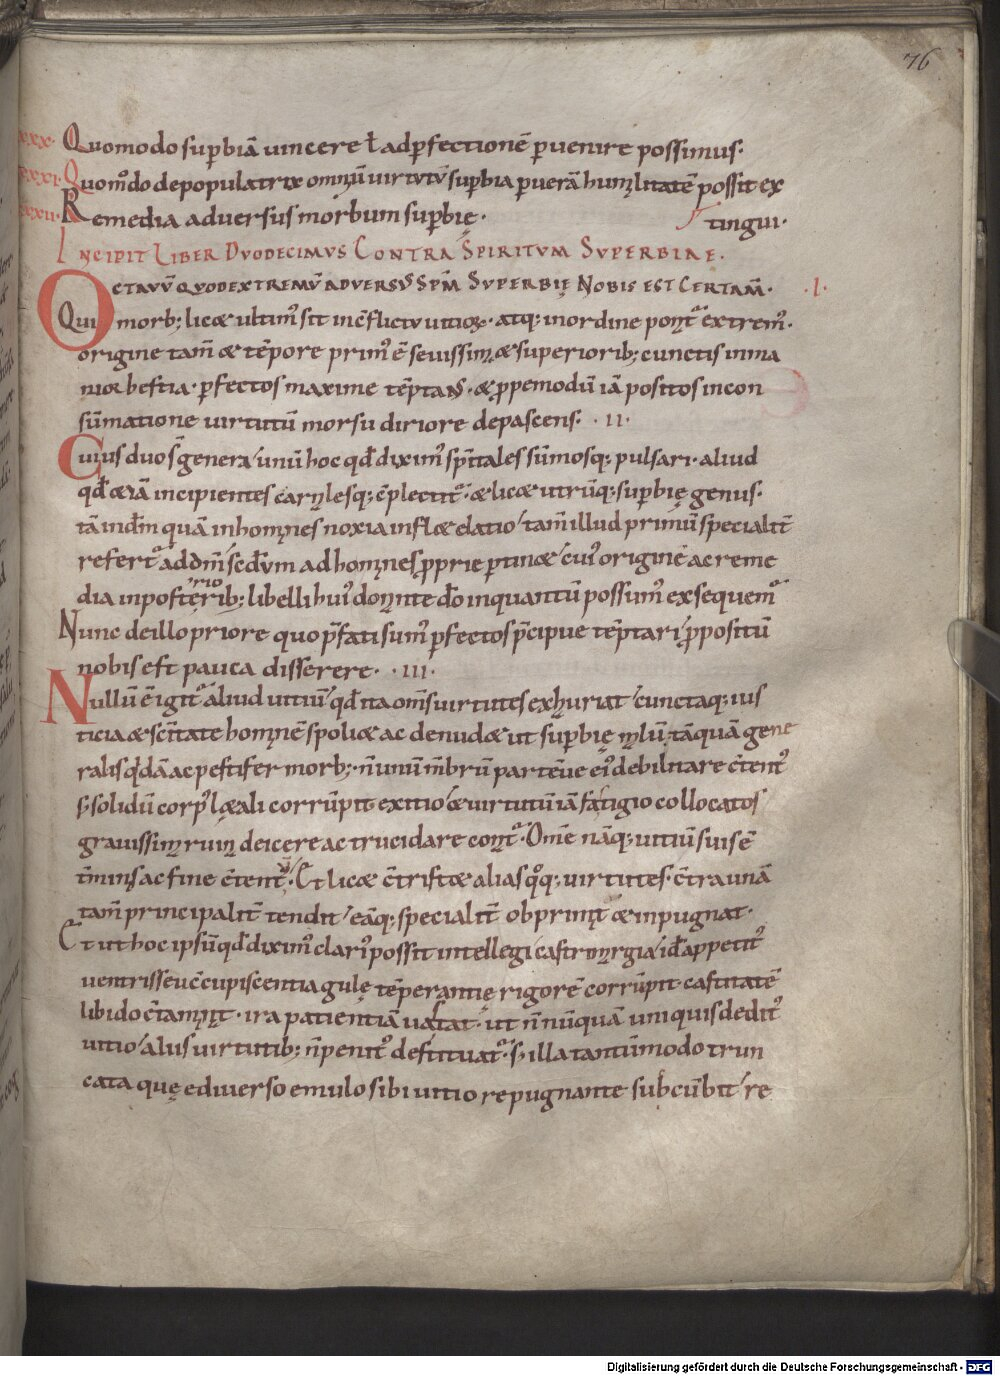 76
xxx. Quomodo supbiā uincere ł adpfectionē puenire possimus:
xxxi. Quom̊do depopulatrix omniū uirtutū supbia puerā humilitatē possit ex
xxxii. Remedia aduersus morbum supbię. tingui.
INCIPIT LIBER DUODECIMUS CONTRA SPIRITUM SUPERBIAE.
OCTAVŪ QUOD EXTREMŪ ADVERSUS SPM SUPERBIĘ NOBIS EST CERTAM̄. .I.
Qui morb; licæ ultim' sit in cflictu uitioꝝ. atq; inordine ponit' extrem'.
origine tam̄ æ tēpore prim' ē seuissim' æ superiorib; cunctis inma
nior bestia. pfectos maxime tēptans. æ ppemodū iā positos incon
sūmatione uirtutū morsu diriore depascens. .II.
Cuius duo s̄ genera, unū hoc qđ dixim' spitales sūmosq; pulsari. aliud
qđ æiā incipientes carnalesq; cplectit'. æ licæ utrūq; supbię genus.
tā indm̄ quā inhomines noxia inflæ elatio, tam̄ illud primū specialit̄
refert' addm̄, scdum ad homines pprie ptinæ, cui' originē ac reme
dia inposterioribus libelli hui' donante dō inquantū possum' exsequem'
Nunc deillo priore quo pfati sum' pfectos pcipue tēptari, ppositū
nobis est pauca disserere. .III.
Nullū ē igit' aliud uitiū, qđ ita om̄s uirtutes exhauriat, cunctaq; ius
ticia æ scitate hominē spoliæ ac denudæ ut supbię malū. tāquā gene
ralis quidā ac pestifer morb; n̄ unū mbrū partēue ei' debilitare ctent'
s; solidū corp' lætali corrūpit exitio, æ uirtutū iā fastigio collocatos
grauissima ruina deicere ac trucidare conat'. Om̄e nāq; uitiū suis ē
t̄minis ac fine ctent'. Et licæ ctristæ alias qq; uirtutes. ctra unā
tam̄ principalit̄ tendit, eāq; specialit̄ obprimit æ inpugnat.
Et ut hoc ipsū qđ dixim' clari' possit intellegi, castrimargia, id ē appetit'
uentris seu ccupiscentia gulę tēperantię rigorē corrūpit. castitatē
libido ctaminat. ira patientiā uastat. ut n̄ nūquā uni quis dedit'
uitio, aliis uirtutib; n̄ penit' destituat'. s; illa tantūmodo trun
cata quę ediuerso emulo sibi uitio repugnante subcūbit, re
Digitalisierung gefördert durch die Deutsche Forschungsgemeinschaft - DFG